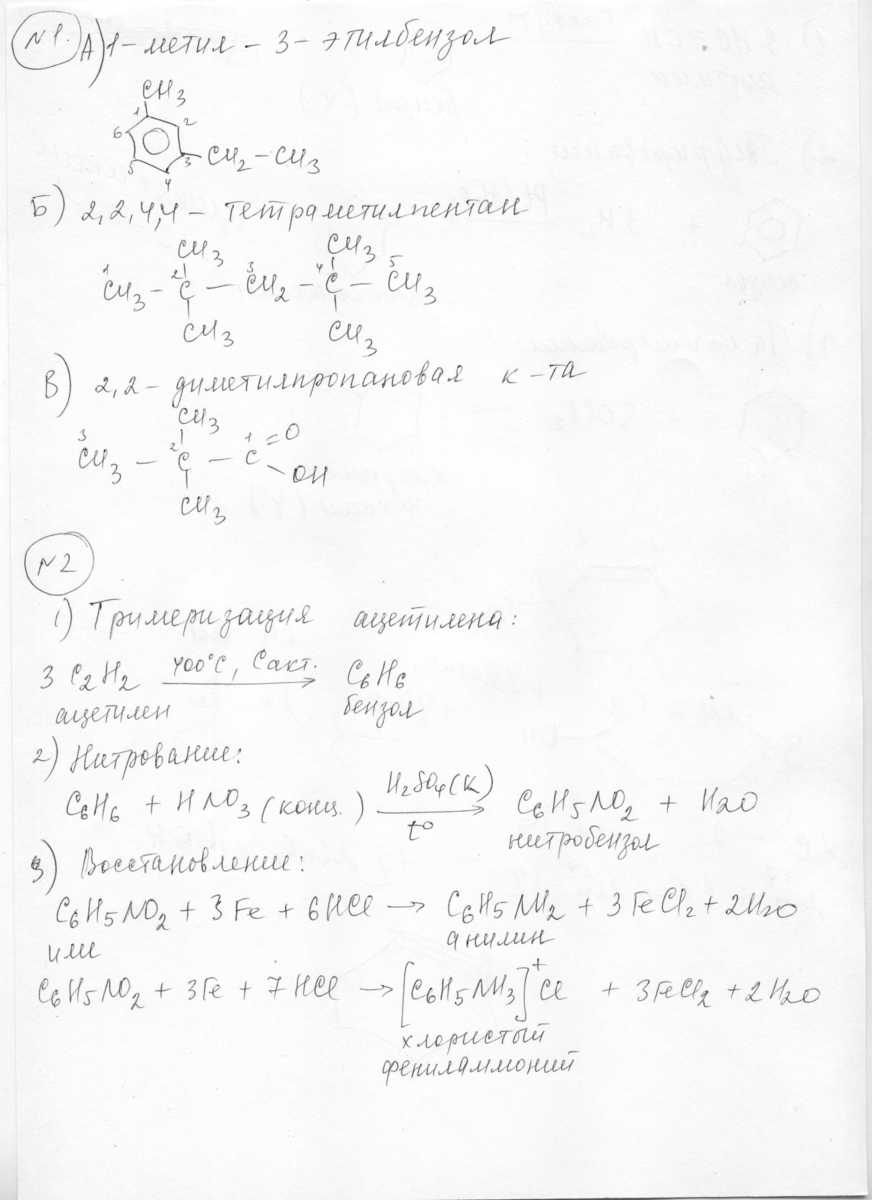 №1. А) 1-метил-3-этилбензол
CH3
1
6 2
5 3 CH2-CH3
4
Б) 2,2,4,4-тетраметилпентан
CH3 CH3
1 2 3 4 5
CH3 - C - CH2 - C - CH3
CH3 CH3
В) 2,2-диметилпропановая к-та
CH3
3 2 1 =O
CH3 - C - C
OH
CH3
№2
1) Тримеризация ацетилена:
3 C2H2 400°C, Cакт. → C6H6
ацетилен бензол
2) Нитрование:
C6H6 + HNO3 (конц.) H2SO4(к) t° → C6H5NO2 + H2O
нитробензол
3) Восстановление:
C6H5NO2 + 3Fe + 6HCl → C6H5NH2 + 3FeCl2 + 2H2O
или анилин
C6H5NO2 + 3Fe + 7HCl → [C6H5NH3]+Cl + 3FeCl2 + 2H2O
хлористый
фениламмоний